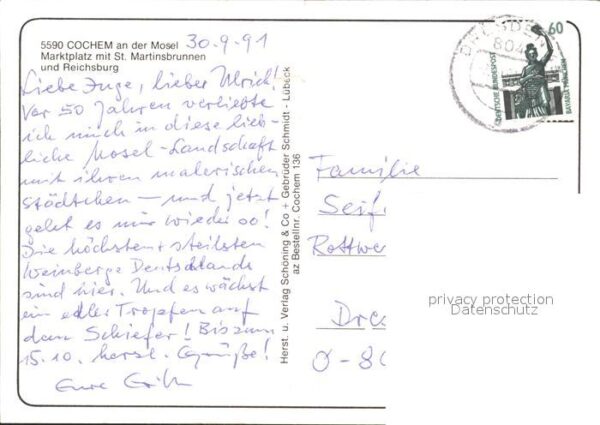 5590 COCHEM an der Mosel
Marktplatz mit St. Martinsbrunnen
und Reichsburg
30.9.91
Liebe Inge, lieber Ulrich!
Vor 50 Jahren verliebte
ich mich in diese lieb-
liche Mosel-Landschaft
mit ihren malerischen
Städtchen – und jetzt
geht es mir wieder so!
Die höchsten + steilsten
Weinberge Deutschlands
sind hier. Und es wächst
ein edler Tropfen auf
dem Schiefer! Bis zum
15.10. herzl. Grüße!
Eure
Herst. u. Verlag Schöning & Co + Gebrüder Schmidt - Lübeck
az Bestellnr. Cochem 136
DRESDEN
804
60
DEUTSCHE BUNDESPOST
BAVARIA MÜNCHEN
Familie
Seif
Rottwe
Dre
O-80
privacy protection
Datenschutz